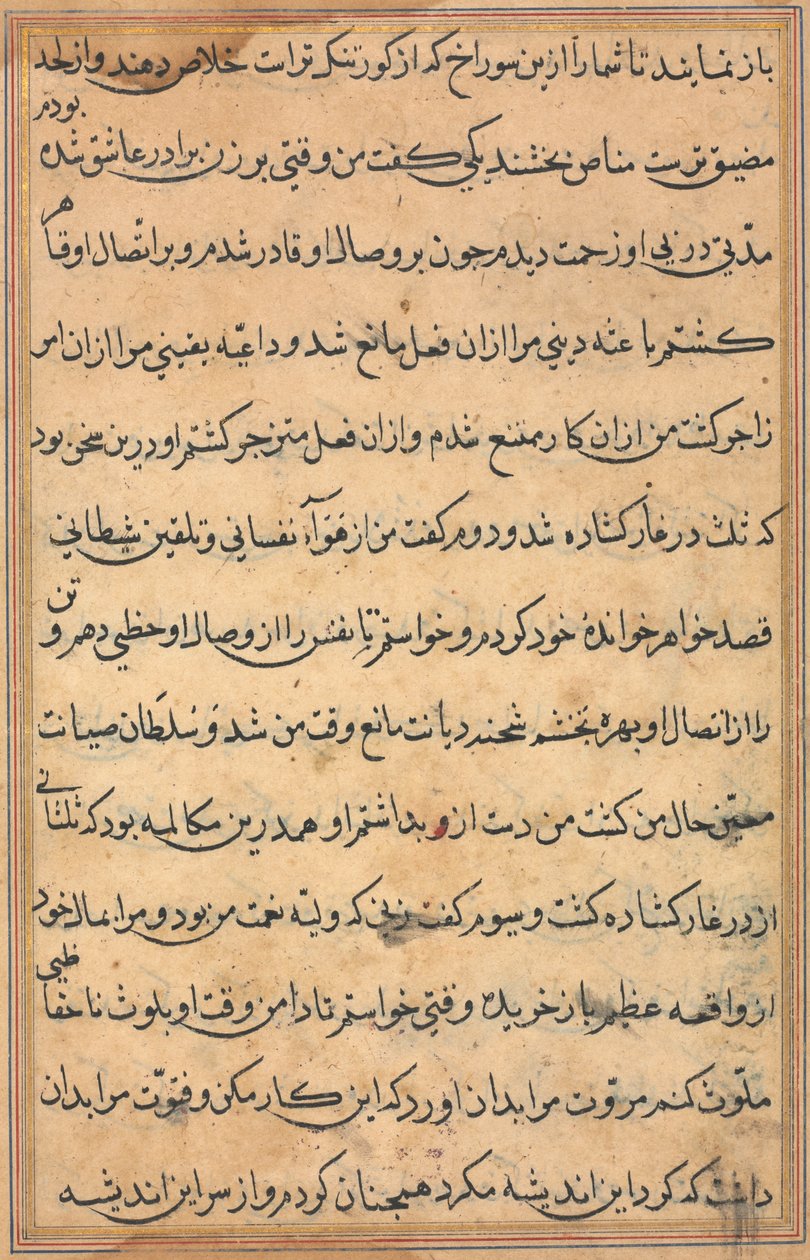 باز نمایند تا شما را ازین سوراخ که از کور تنکتر است خلاص دهند و از لحد
مضیق ترست مناص بخشند یکی کفت من وقتی بر زن برادر عاشق شده بودم
مدّتی در پی او زحمت دیدم جون بر وصال او قادر شدم و بر اتّصال او قاهر
کشتم باعثه دینی مرا ازان فعل مانع شد و داعیّه یقینی مرا ازان امر
زاجر کشت من ازان کار ممتنع شدم و ازان فعل منزجر کشتم او درین سخن بود
که ثلث در غار کشاده شد و دوم کفت من از هَوَآء نفسانی و تلقین شیطانی
قصد خواهر خواندهٔ خود کردم و خواستم تا نفس را از وصال او حظی دهم و تن
را از اتصال او بهره بخشم شحنه دیانت مانع وقت من شد وَ سُلطَان صیانت
معیّن حال من کشت من دست ازو بداشتم او همدرین مکالمه بود که ثلثانی
از در غار کشاده کشت و سیوم کفت زنی که ولیّه نعمت من بود و مرا بمال خود
از واقعه عظیم باز خریده وقتی خواستم تا دامن وقت او بلوث ناحفاظی
ملّوث کنم مروّت مرا بدان اورد که این کار مکن و فتوّت مرا بدان
داشت که کرد این اندیشه مکرد همجنان کردم و از سر این اندیشه